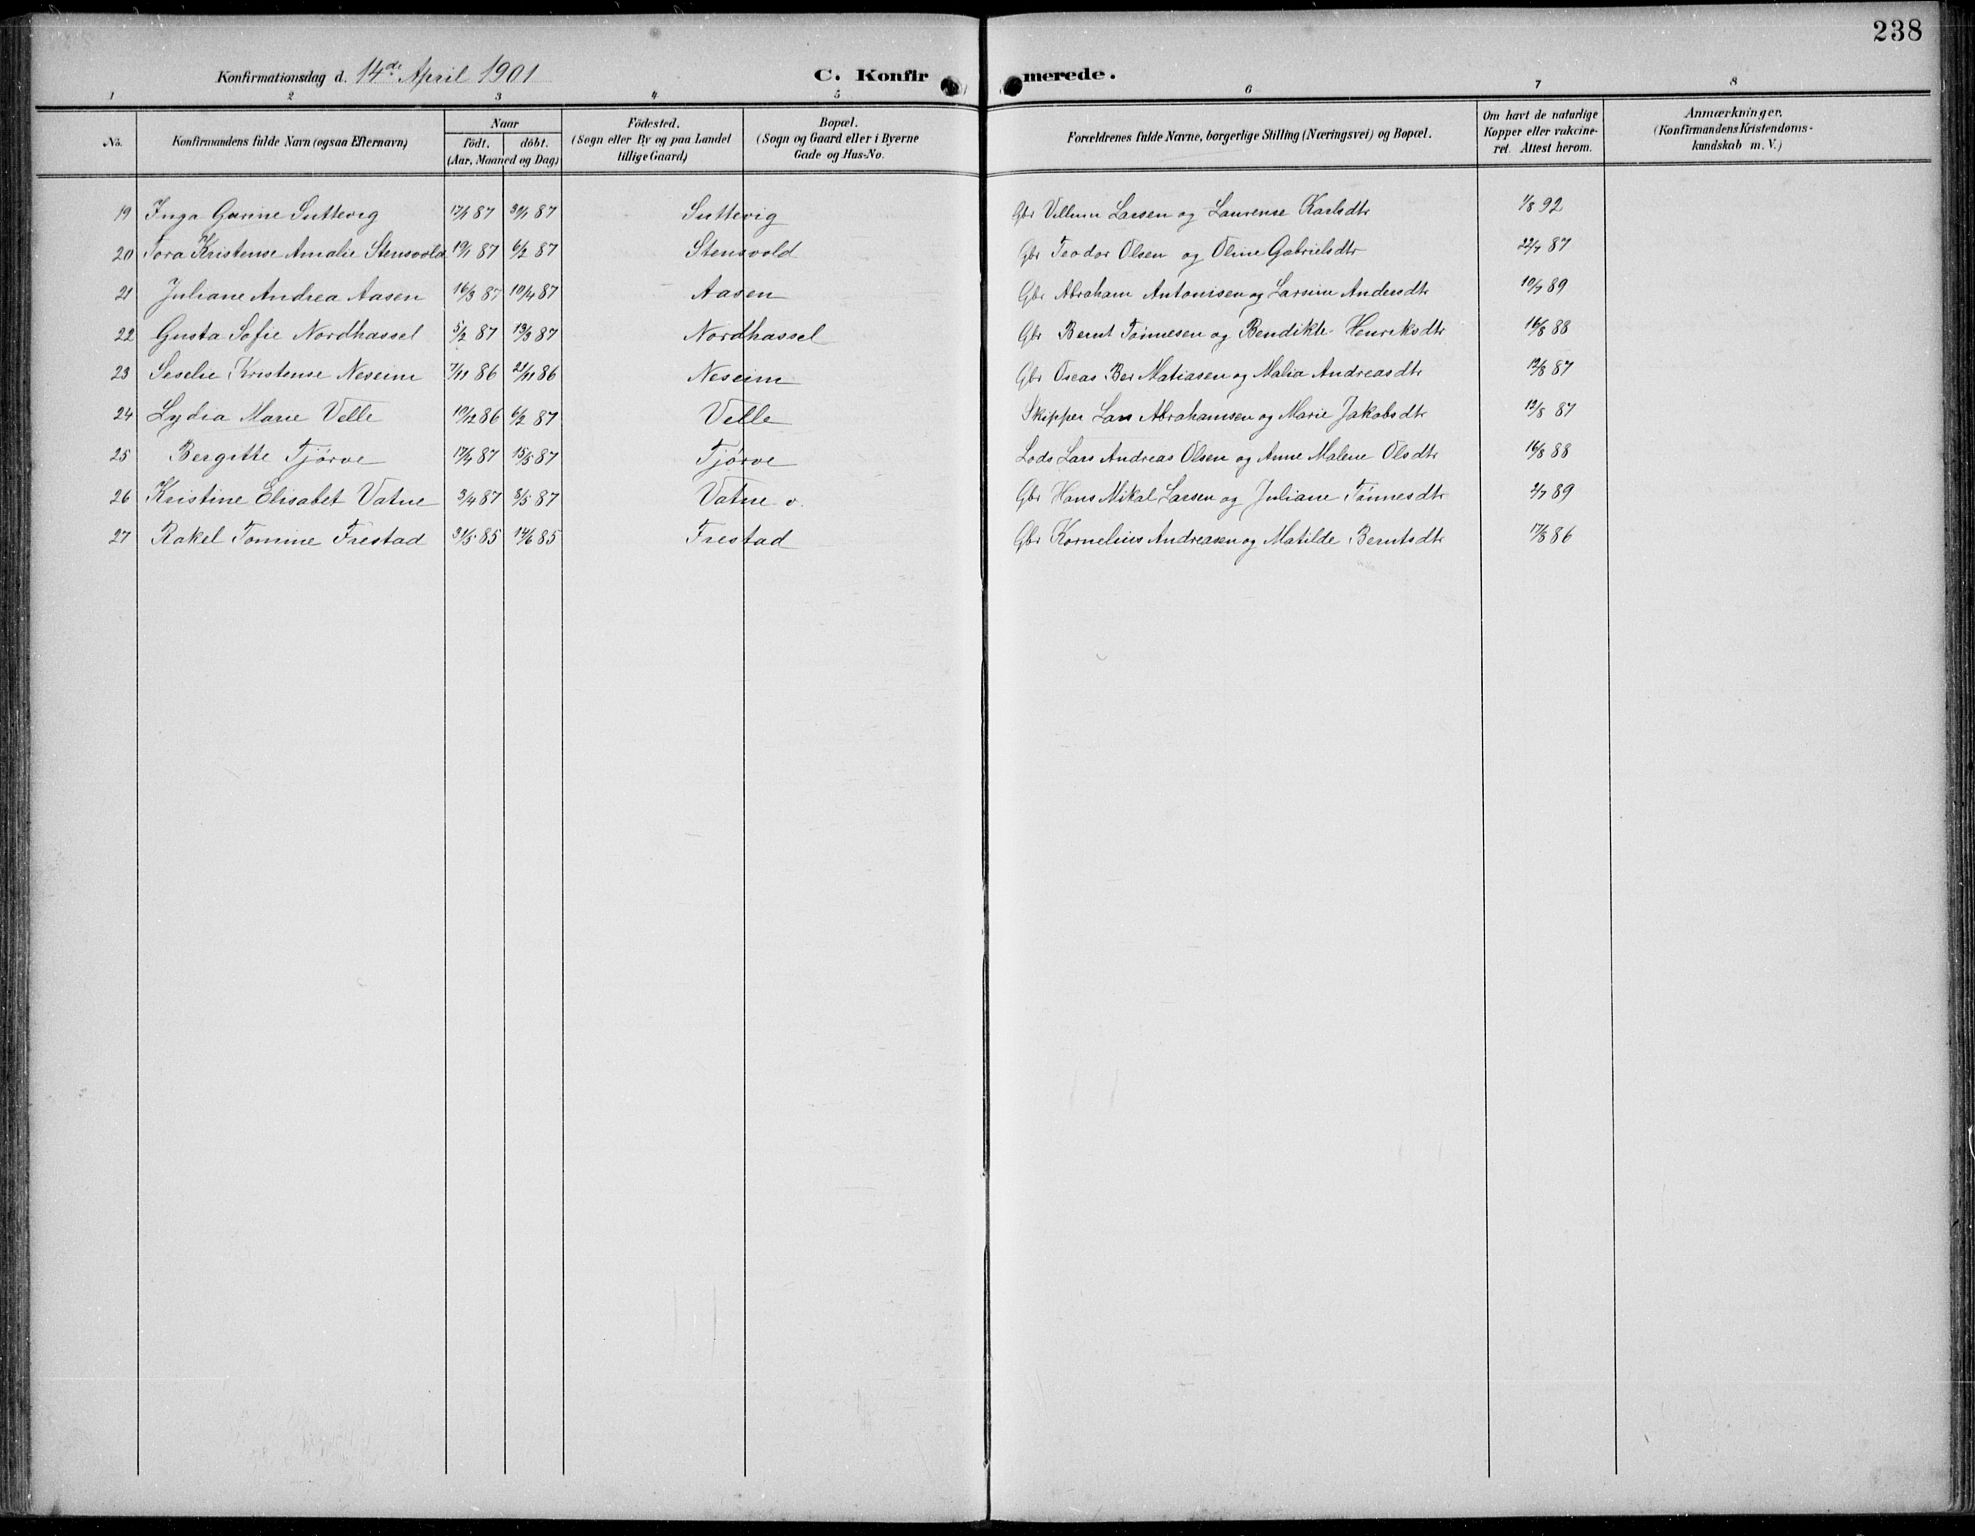 238
Konfirmationsdag d. 14de April 1901 C. Konfirmerede.
1 2 3 4 5 6 7 8
No. Konfirmandens fulde Navn (ogsaa Efternavn) Naar födt. döbt. (Aar, Maaned og Dag) Födested. (Sogn eller By og paa Landet tillige Gaard) Bopæl. (Sogn og Gaard eller i Byerne Gade og Hus-No. Forældrenes fulde Navne, borgerlige Stilling (Næringsvei) og Bopæl. Om havt de naturlige Kopper eller vakcineret. Attest herom. Anmærkninger. (Konfirmandens Kristendomskundskab m. V.)
19 Inga Garine Suttevig 87 87 Suttevig Gbr Villum Larsen og Laurense Karlsdtr 1/8 92
20 Tora Kristense Amalie Stensvold 19/1 87 6/2 87 Stensvold Gbr Teodor Olsen og Oline Gabrielsdtr 22/7 87
21 Juliane Andrea Aasen 16/3 87 10/4 87 Aasen Gbr Abraham Antonisen og Larsine Andersdtr 10/7 89
22 Gusta Sofie Nordhassel 5/2 87 13/3 87 Nordhassel Gbr Bernt Tønnesen og Bendikte Henriksdtr 16/8 88
23 Seselie Kristense Neseim 7/11 86 21/11 86 Neseim Gbr Oseas Ber Matiasen og Malia Andreasdtr 12/8 87
24 Lydia Marie Velle 10/12 86 6/2 87 Velle Skipper Lars Abrahamsen og Marie Jakobsdtr 12/8 87
25 Bergitte Tjørve 17/4 87 15/5 87 Tjørve Lods Lars Andreas Olsen og Anne Malene Olsdtr 16/8 88
26 Kristine Elisabet Vatne 3/4 87 8/5 87 Vatne o. Gbr Hans Mikal Larsen og Juliane Tønnesdtr 2/7 89
27 Rakel Tomine Frestad 31/5 85 14/6 85 Frestad Gbr Kornelius Andreasen og Matilde Berntsdtr 17/8 86